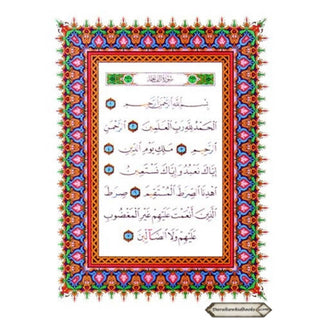 سورة الفاتحة
بسم الله الرحمن الرحيم ۝
الحمد لله رب العلمين ۝ الرحمن
الرحيم ۝ ملك يوم الدين ۝
إياك نعبد وإياك نستعين ۝
اهدنا الصرط المستقيم ۝ صرط
الذين أنعمت عليهم غير المغضوب
عليهم ولا الضالين ۝